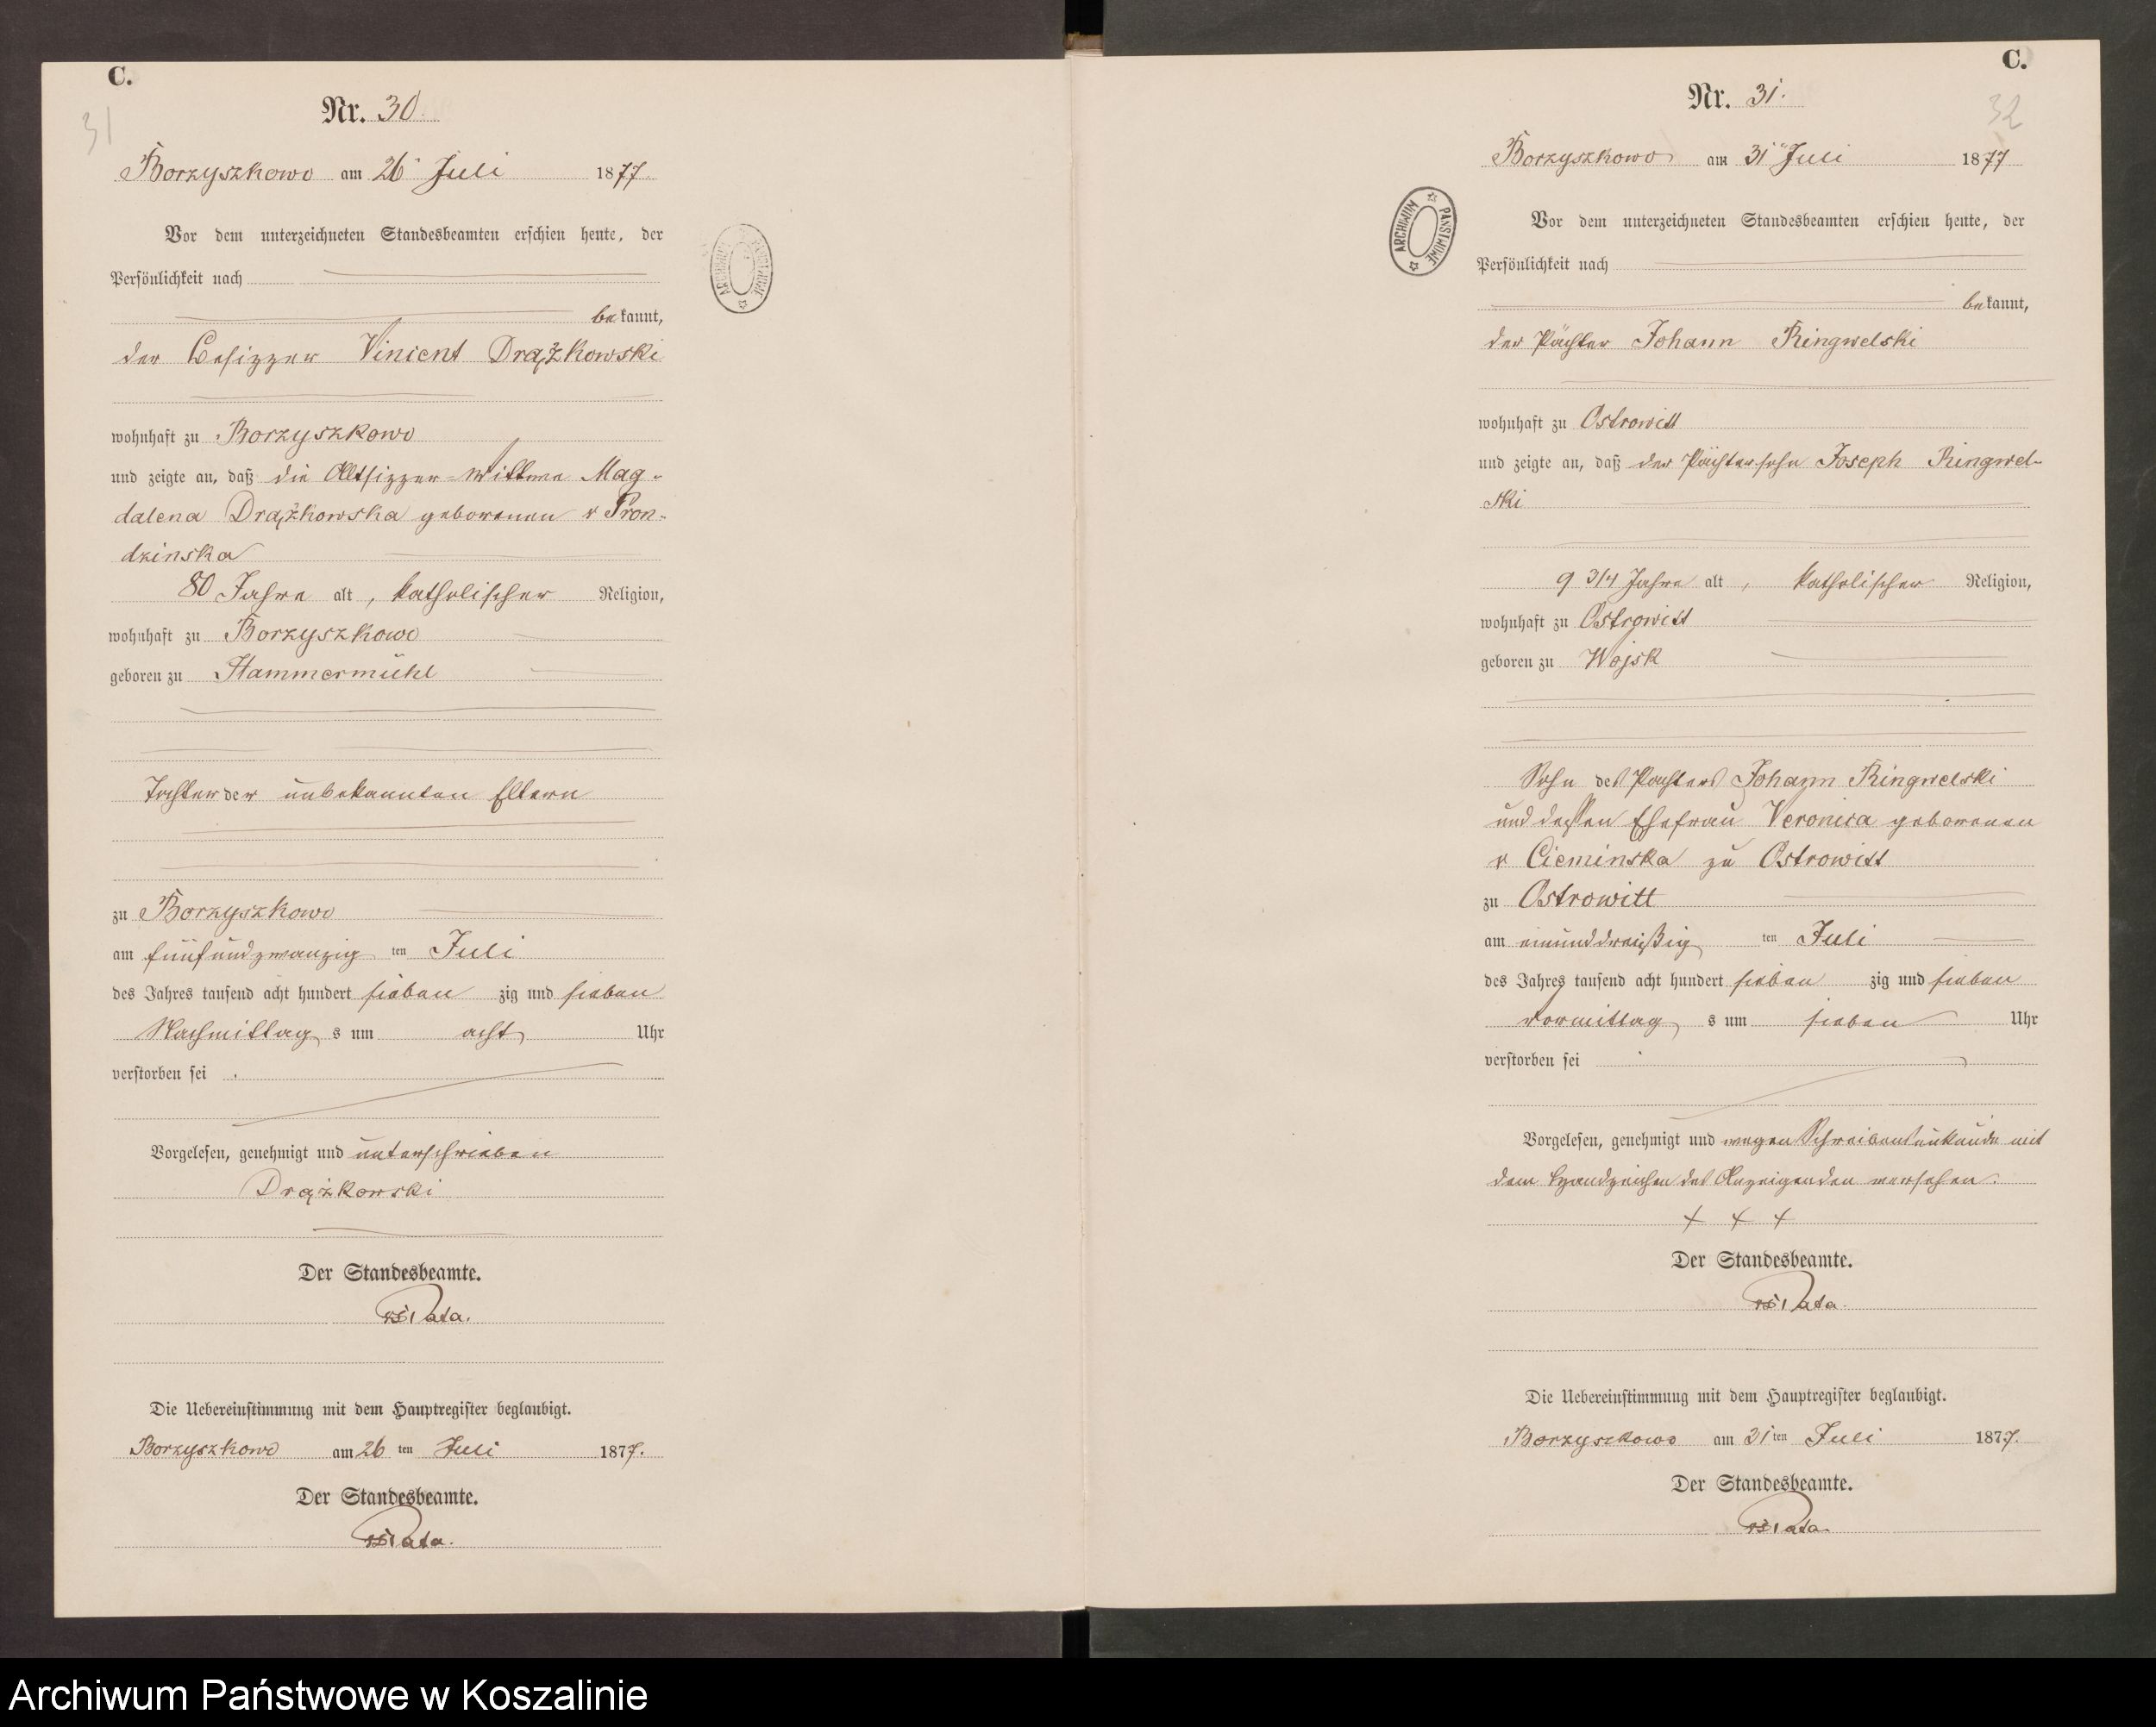 C.
31
Nr. 30.
Borzyszkowo am 26 Juli 1877.
Vor dem unterzeichneten Standesbeamten erschien heute, der
Persönlichkeit nach
bekannt,
der Besizzer Vincent Drążkowski
wohnhaft zu Borzyszkowo
und zeigte an, daß die Altsizzer-Wittwe Mag-
dalena Drążkowska geborenen v Pron-
dzinska
80 Jahre alt, katholischer Religion,
wohnhaft zu Borzyszkowo
geboren zu Hammermühl
Tochter der unbekannten Eltern
zu Borzyszkowo
am fünfundzwanzig ten Juli
des Jahres tausend acht hundert sieben zig und sieben
Nachmittag s um acht Uhr
verstorben sei.
Vorgelesen, genehmigt und unterschrieben
Drążkowski
Der Standesbeamte.
Pata.
Die Uebereinstimmung mit dem Hauptregister beglaubigt.
Borzyszkowo am 26 ten Juli 1877.
Der Standesbeamte.
Pata.
ARCHIWUM PAŃSTWOWE
C.
32
Nr. 31.
Borzyszkowo am 31 Juli 1877
ARCHIWUM PAŃSTWOWE
Vor dem unterzeichneten Standesbeamten erschien heute, der
Persönlichkeit nach
bekannt,
der Pächter Johann Ringwelski
wohnhaft zu Ostrowitt
und zeigte an, daß der Pächtersohn Joseph Ringwel-
ski
9 3/4 Jahre alt, katholischer Religion,
wohnhaft zu Ostrowitt
geboren zu Wojsk
Sohn des Pachters Johann Ringwelski
und dessen Ehefrau Veronica geborenen
v Cieminska zu Ostrowitt
zu Ostrowitt
am einunddreißig ten Juli
des Jahres tausend acht hundert sieben zig und sieben
vormittag s um sieben Uhr
verstorben sei
Vorgelesen, genehmigt und wegen Schreibensunkunde mit
dem Handzeichen des Anzeigenden versehen.
+ + +
Der Standesbeamte.
Pata.
Die Uebereinstimmung mit dem Hauptregister beglaubigt.
Borzyszkowo am 31 ten Juli 1877.
Der Standesbeamte.
Pata.
Archiwum Państwowe w Koszalinie